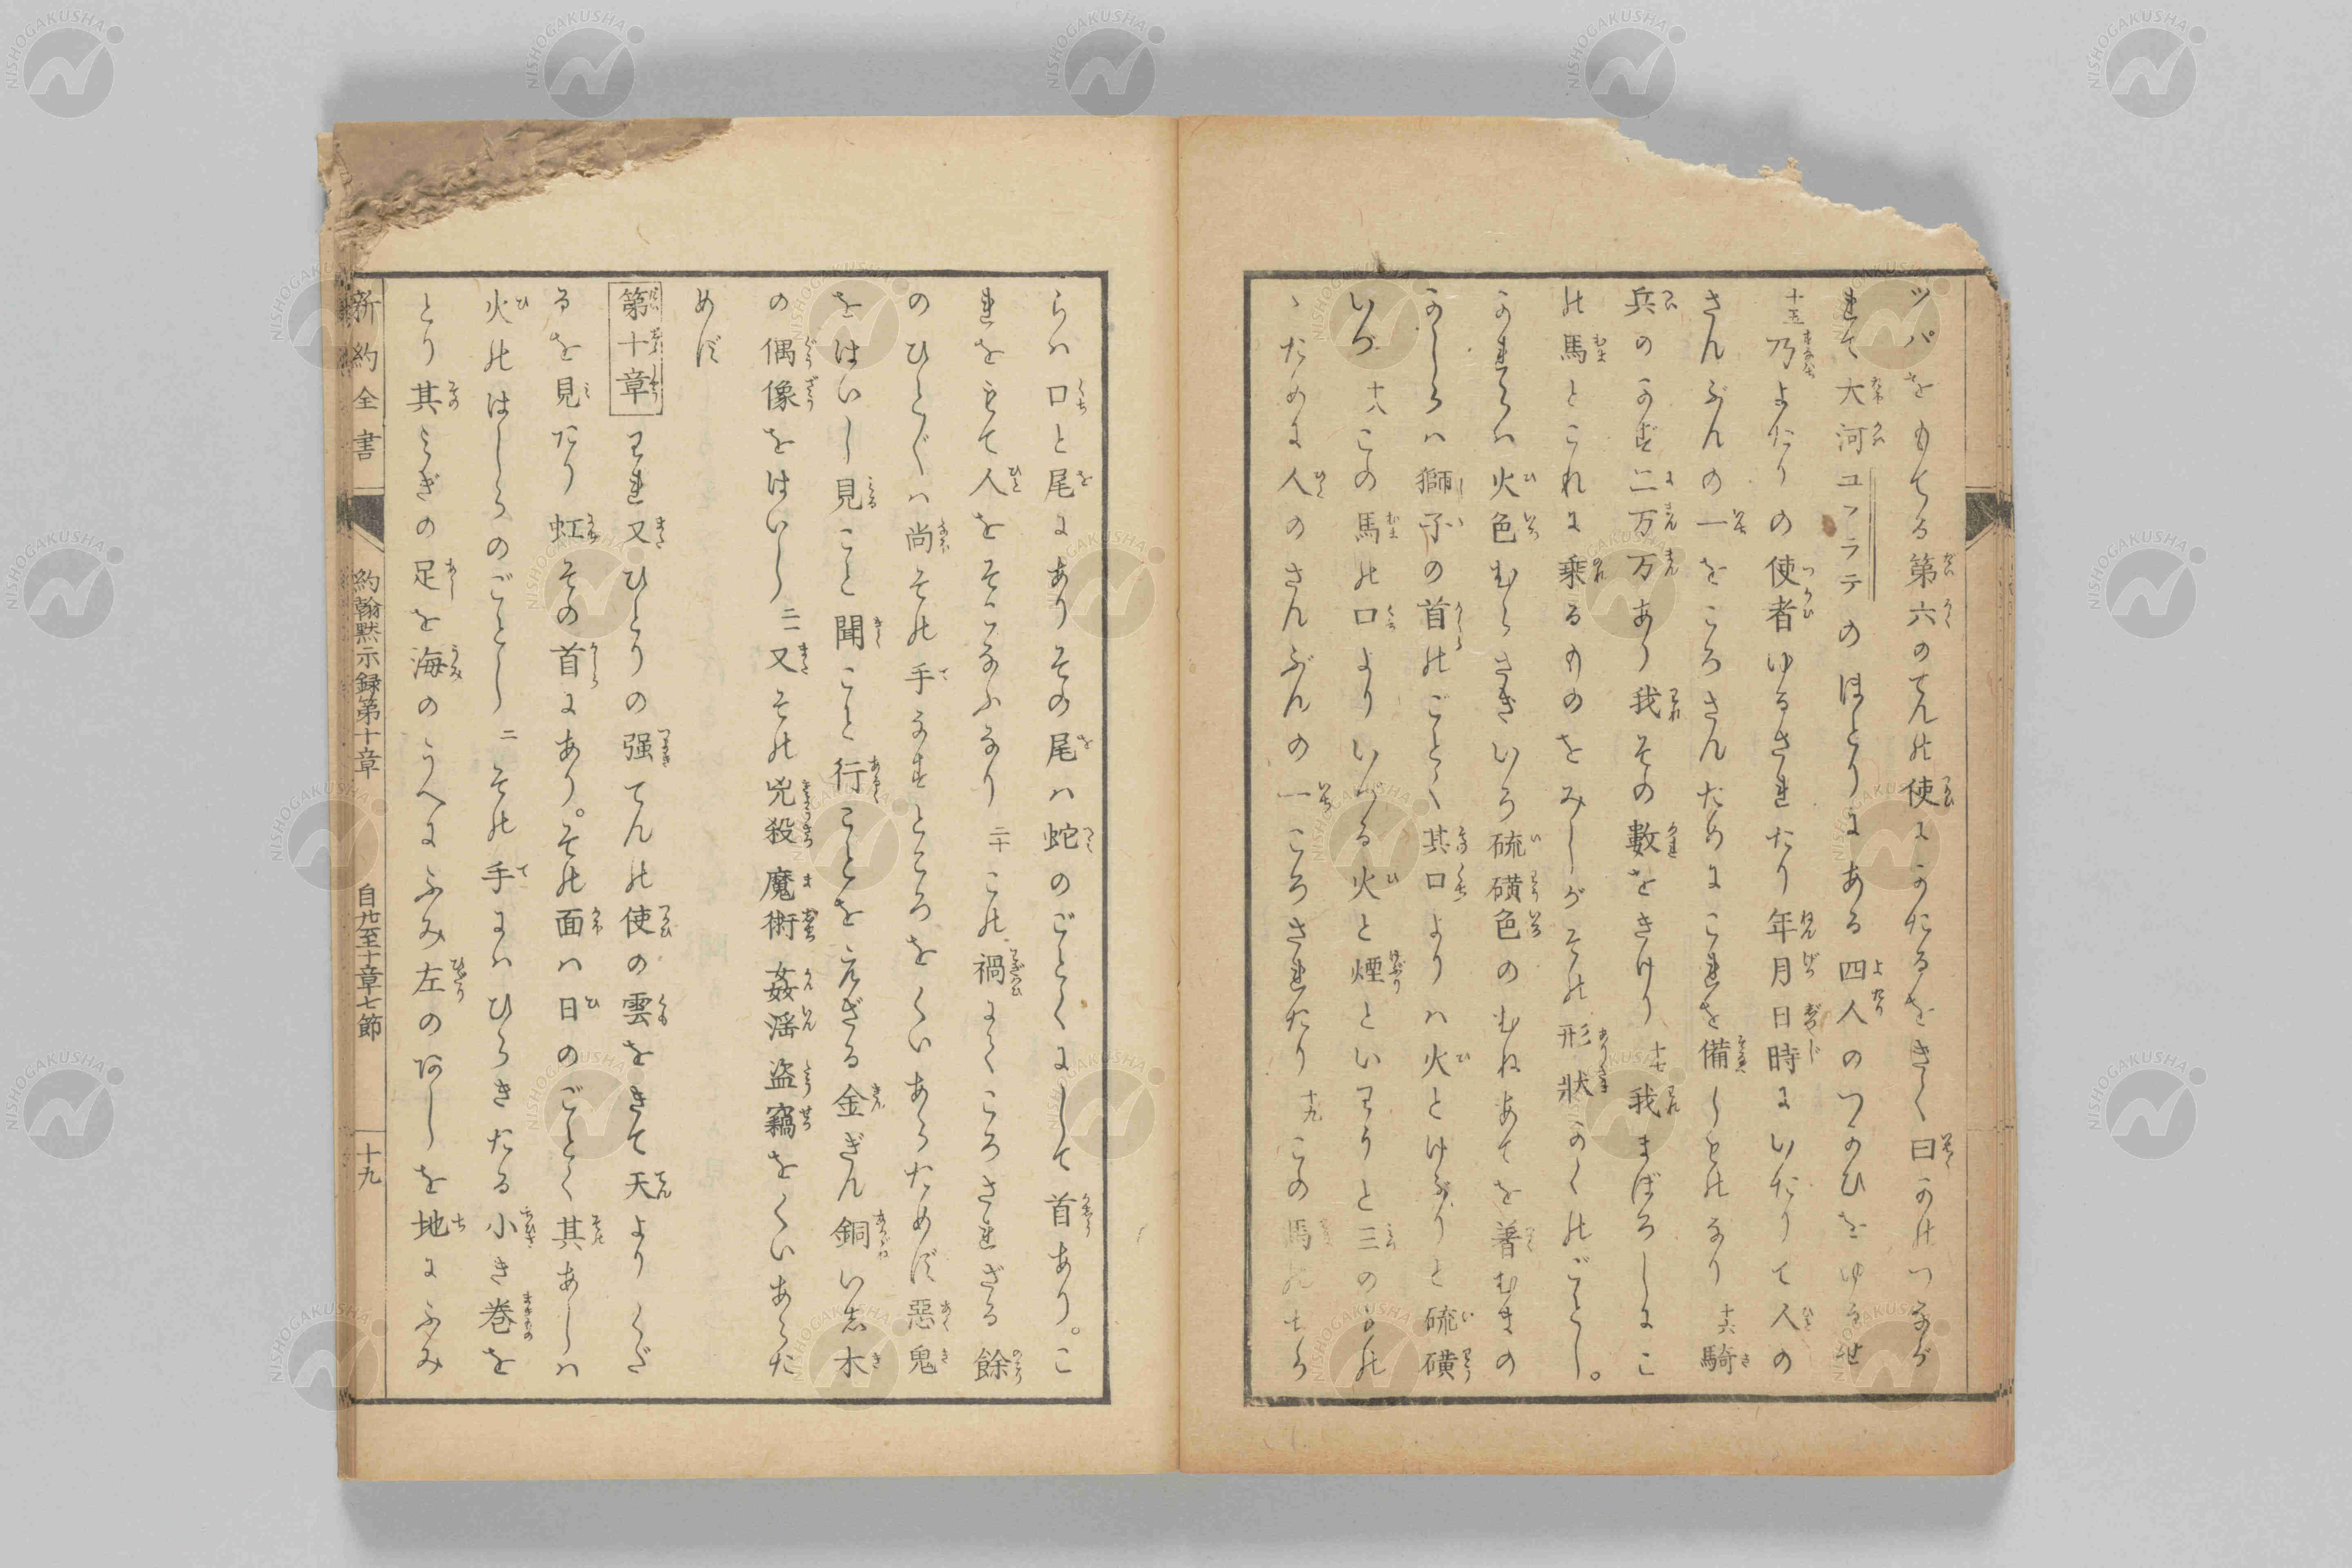 ツパをもてる第六のてんの使にかたるをきく曰かのつなが
れて大河ユフラテのほとりにある四人のつかひをゆるせ
十五乃よたりの使者ゆるされたり年月日時にいたりて人の
さんぶんの一をころさんためにこれを備しものなり十六騎
兵のかず二万万あり我その數をきけり十七我まぼろしにこ
の馬とこれに乗るものをみしがその形狀かくのごとし。
かれらハ火色むらさきいろ硫磺色のむねあてを着むまの
かしらハ獅子の首のごとく其口よりハ火とけぶりと硫磺
いづ十八この馬の口よりいづる火と煙といわうと三のもの
ゝために人のさんぶんの一ころされたり十九この馬のちか
らハ口と尾にありその尾ハ蛇のごとくにして首あり。こ
れをもて人をそこなふなり二十この禍によくころされざる餘
のひとゞハ尚その手なすところをくいあらためず惡鬼
をはいし見こと聞こと行ことをえざる金ぎん銅いし木
の偶像をはいし二一又その兇殺魔術姦淫盗竊をくいあらた
めず
第十章われ又ひとりの强てんの使の雲をきて天よりくだ
るを見たり虹その首にあり。その面ハ日のごとく其あしハ
火のはしらのごとし二その手にハひらきたる小き巻を
とり其みぎの足を海のうへにふみ左のあしを地にふみ
新約全書
約翰黙示録第十章
自九至十章七節
十九
NISHOGAKUSHA